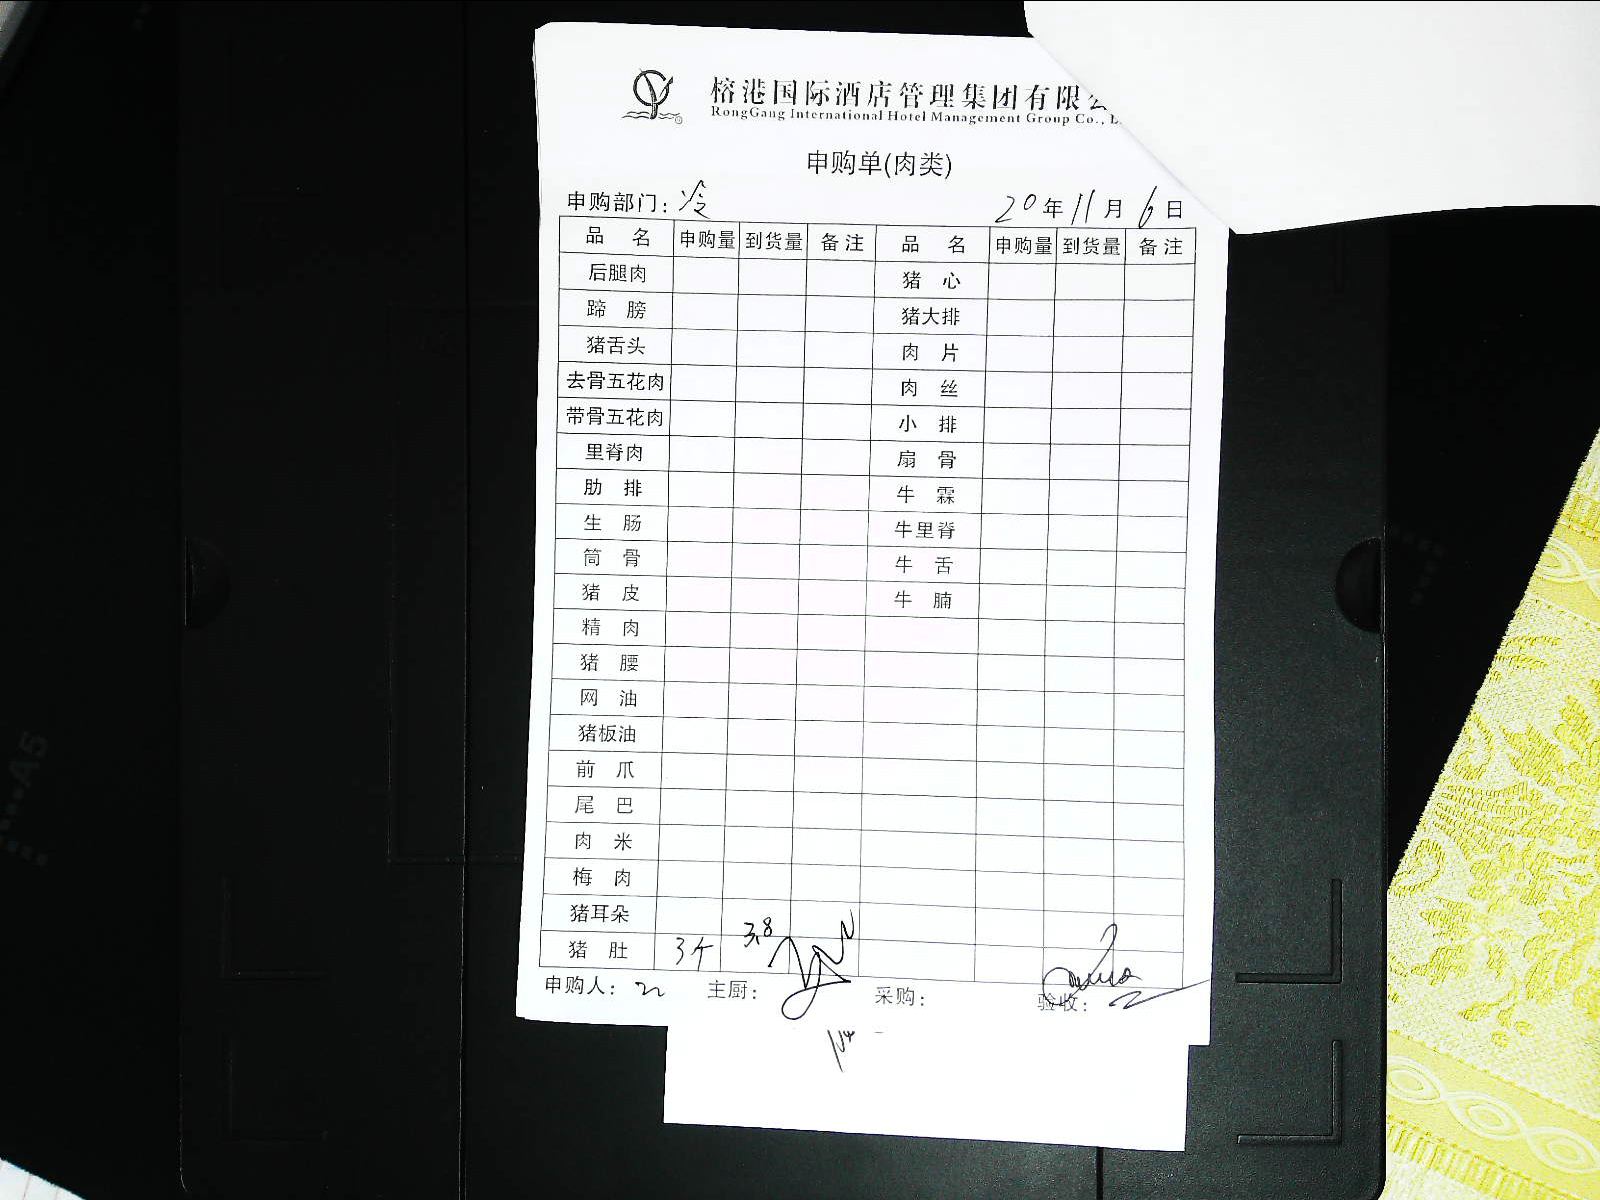 榕港国际酒店管理集团有限
RongGang International Hotel Management Group Co.,
申购单(肉类)
申购部门：冷 20年11月6日
品名 申购量 到货量 备注 品名 申购量 到货量 备注
后腿肉 猪心
蹄膀 猪大排
猪舌头 肉片
去骨五花肉 肉丝
带骨五花肉 小排
里脊肉 扇骨
肋排 牛霖
生肠 牛里脊
筒骨 牛舌
猪皮 牛腩
精肉
猪腰
网油
猪板油
前爪
尾巴
肉米
梅肉
猪耳朵
猪肚 3个 3.8
申购人： 主厨： 采购： 验收：